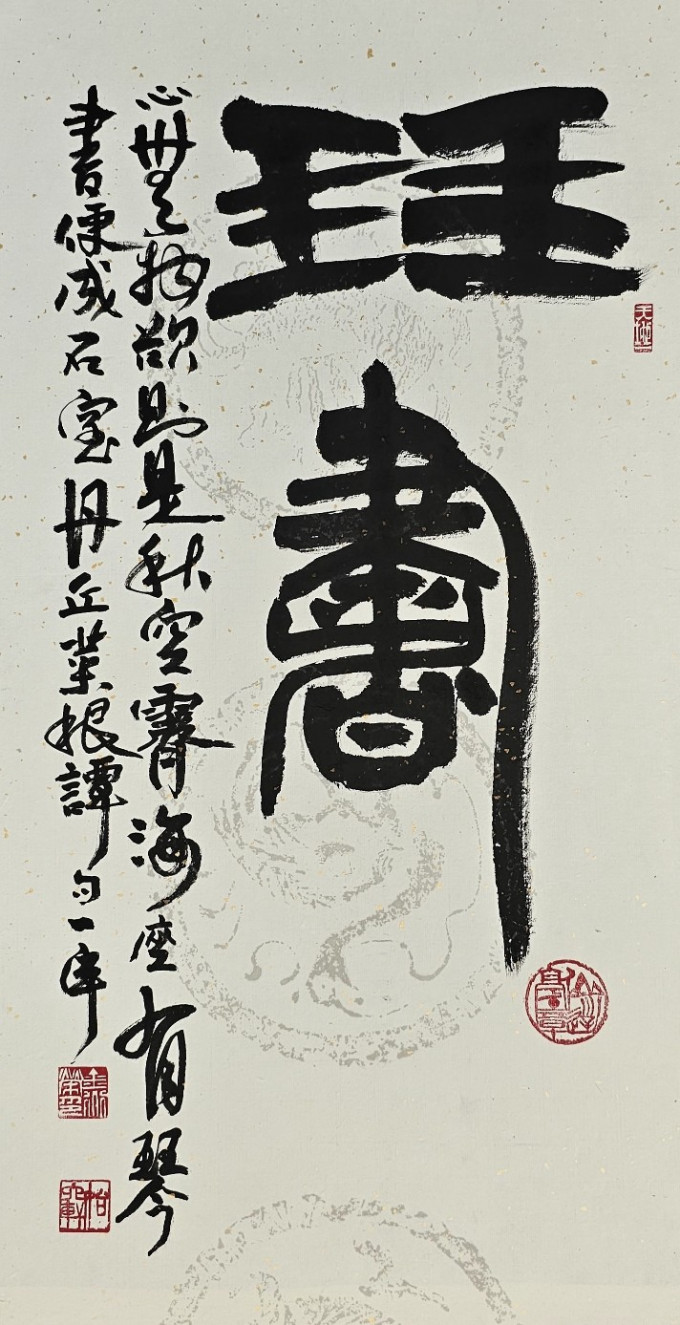 琴書
心無物欲即是秋空霽海座有琴
書便成石室丹丘菜根譚句一